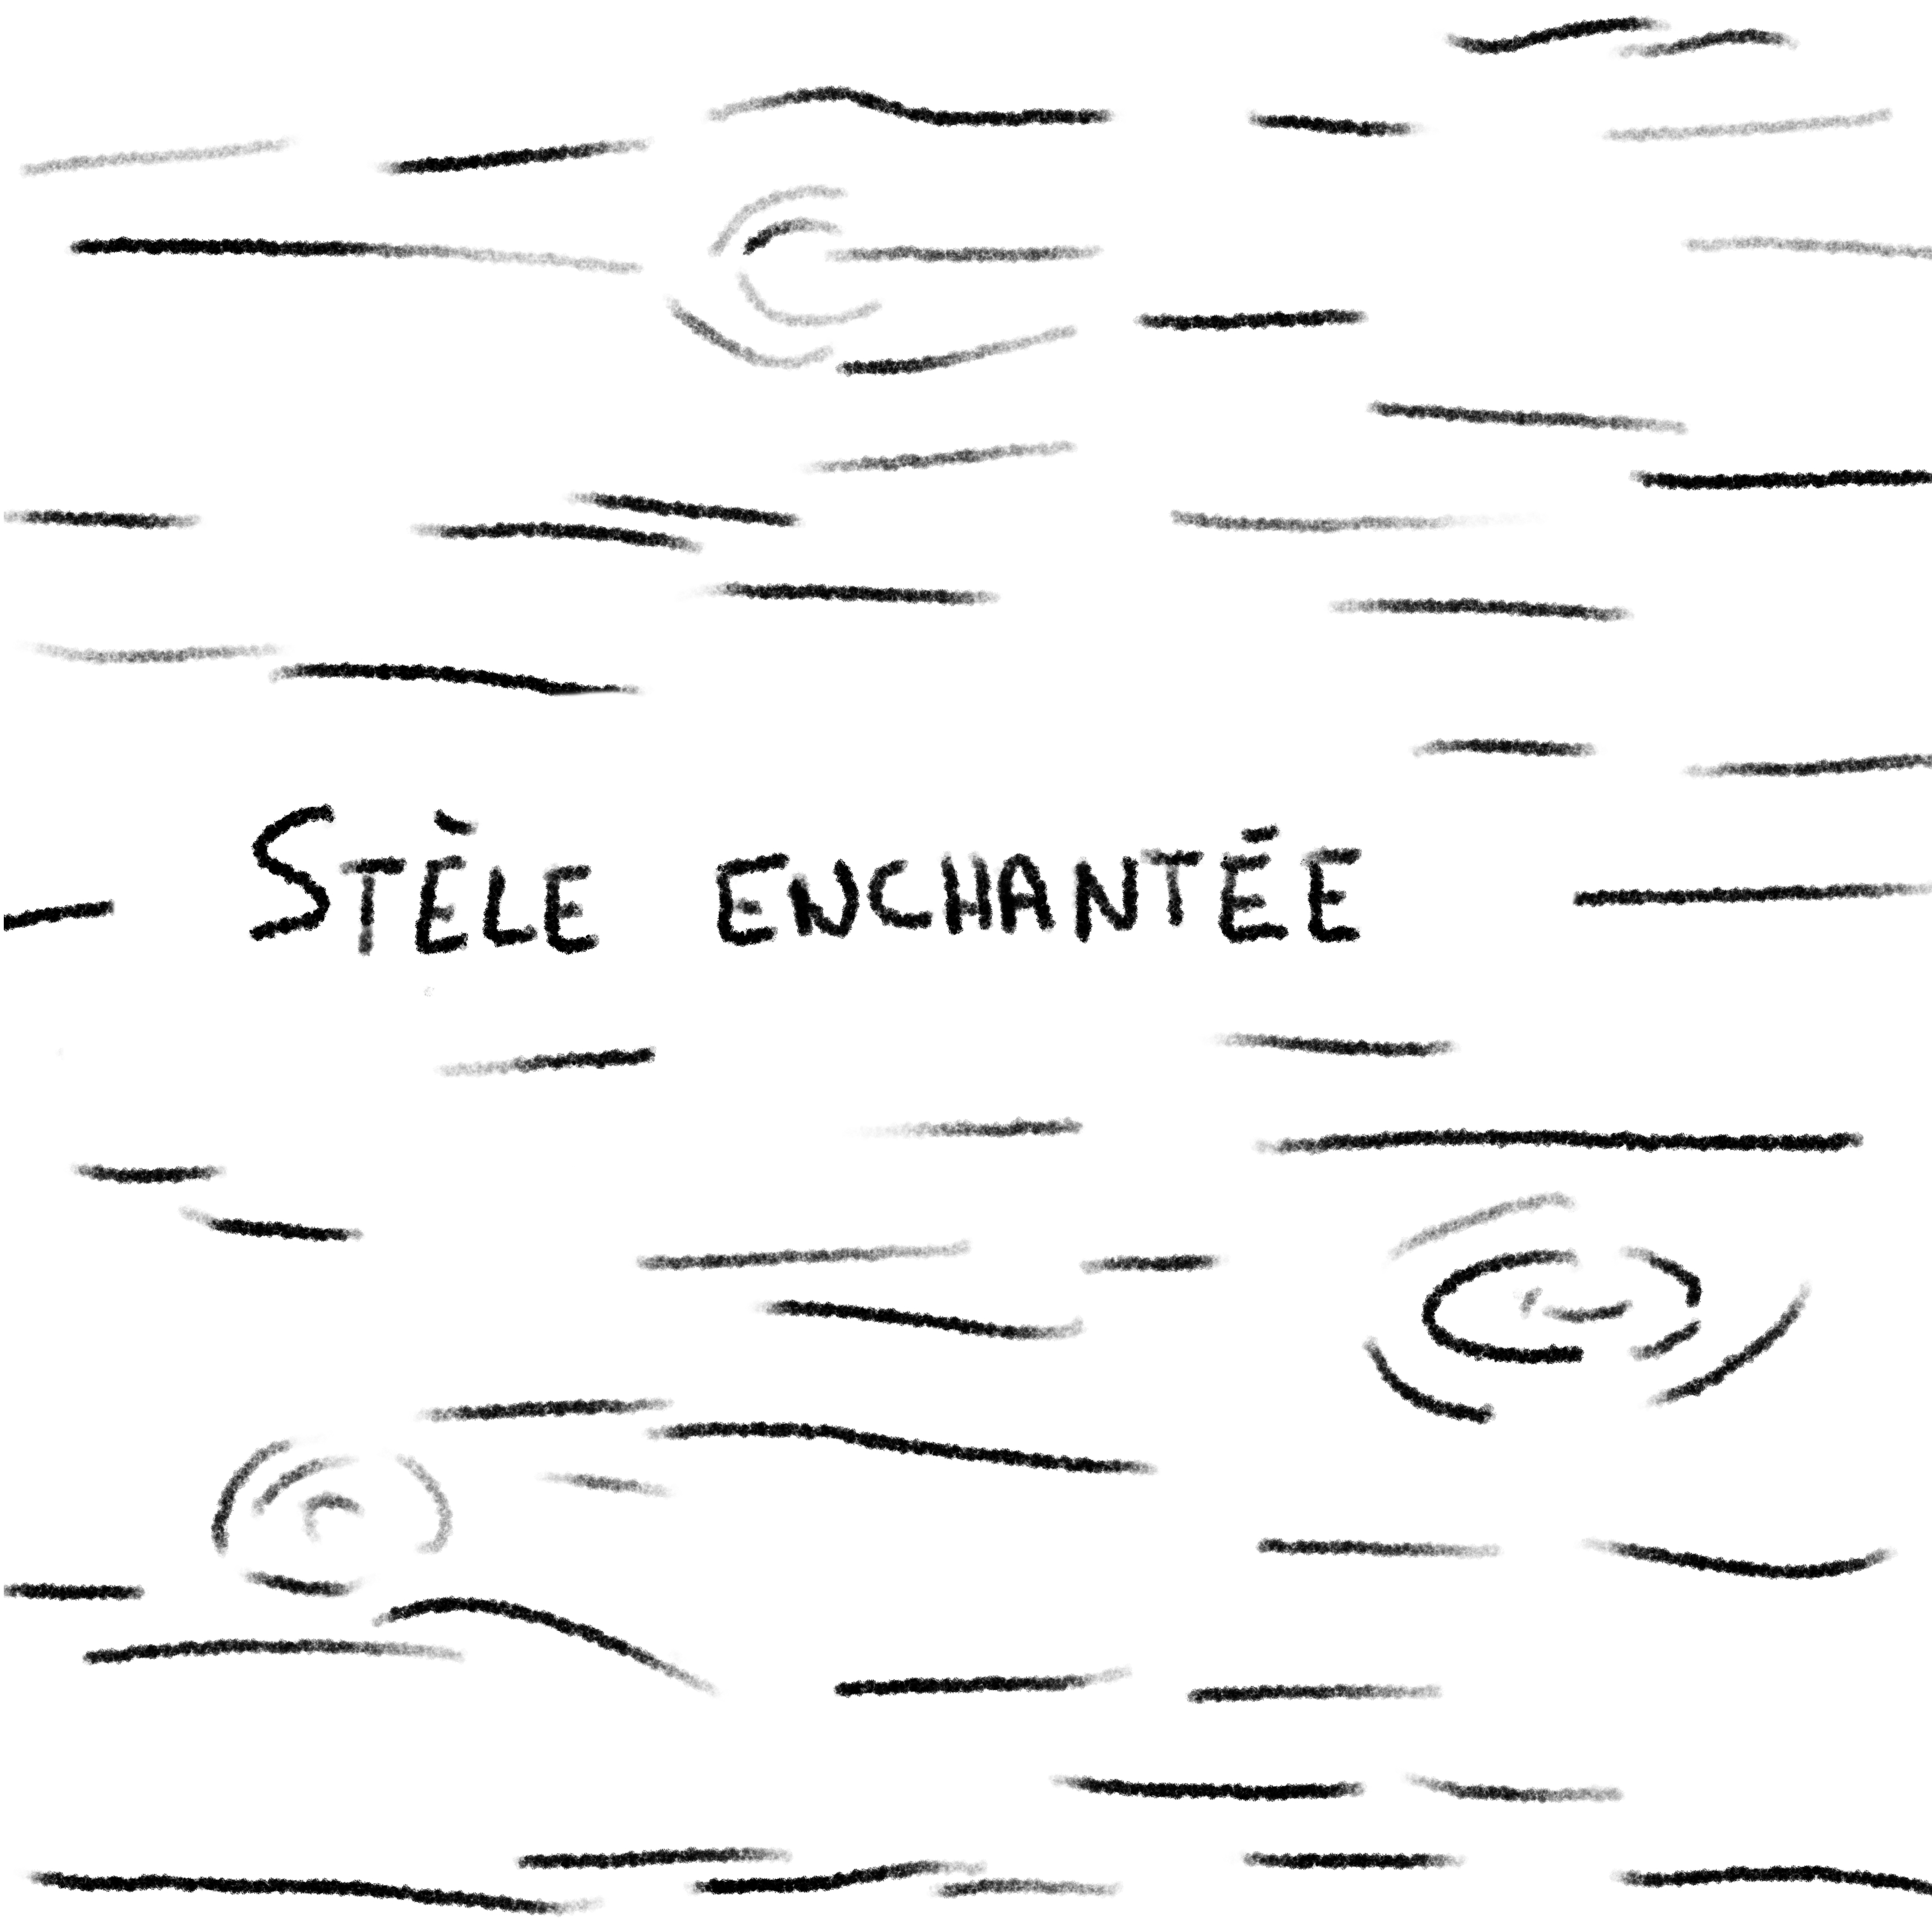 STÈLE ENCHANTÉE